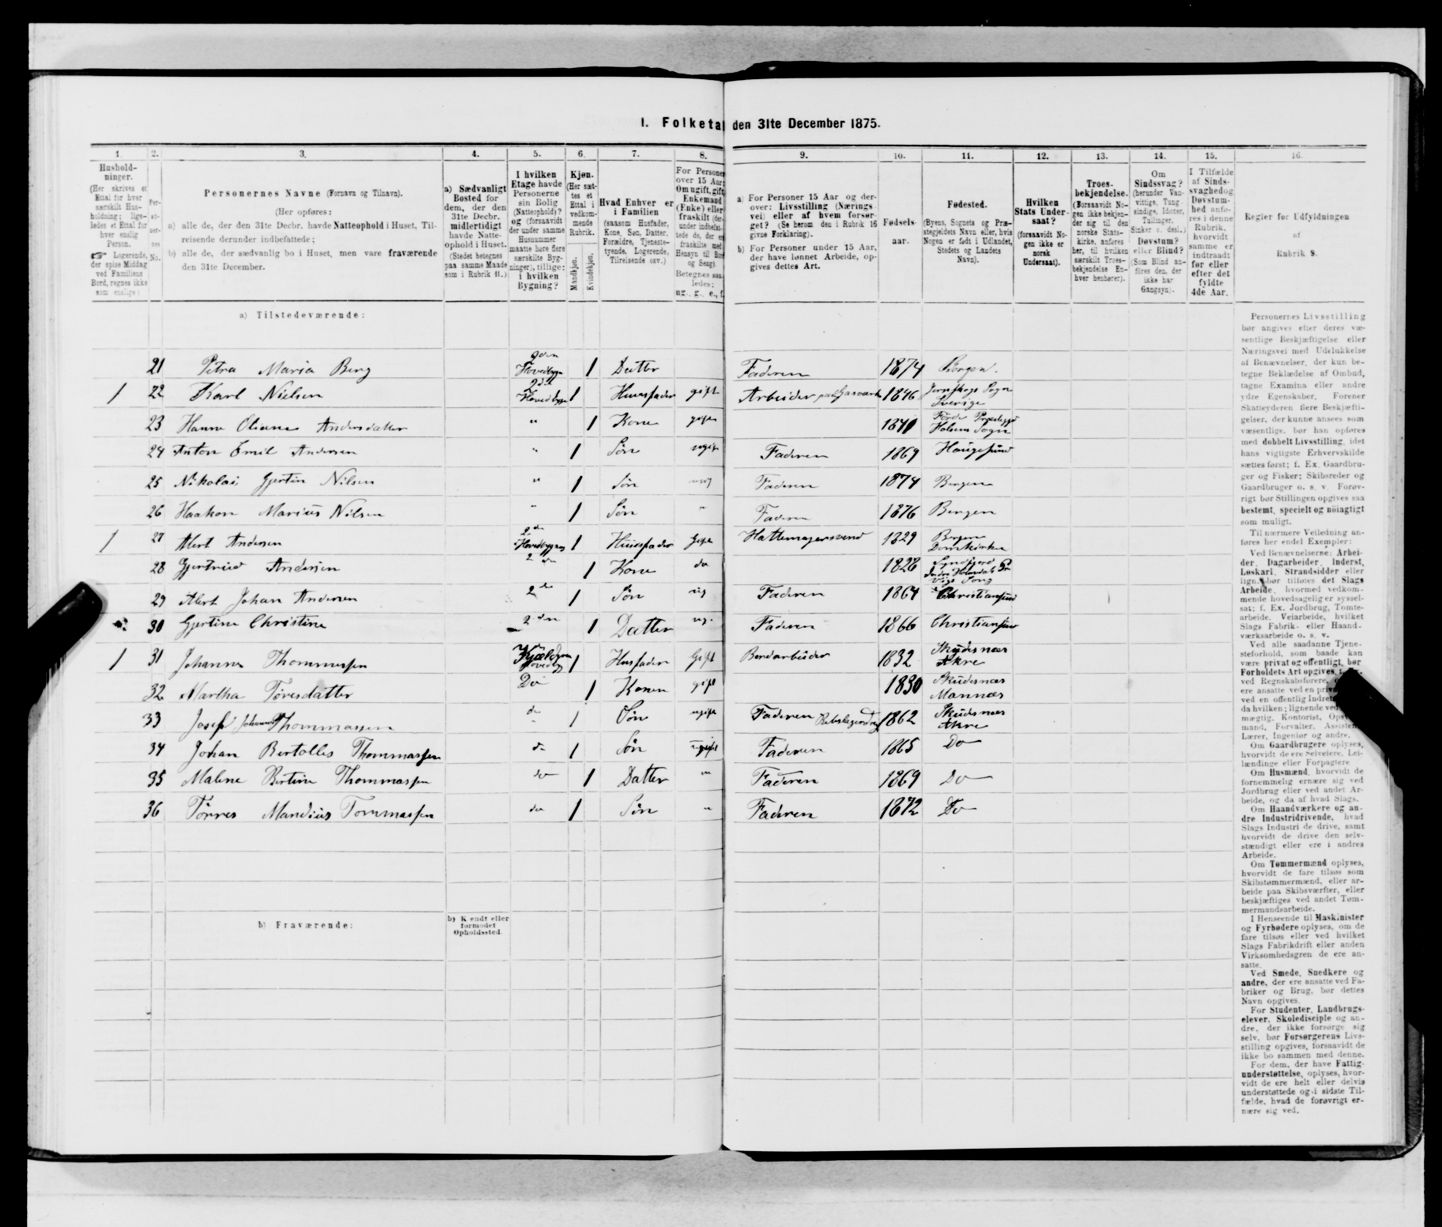 I. Folketal den 31te December 1875.
1.
2.
3.
4.
5.
6.
7.
8.
9.
10.
11.
12.
13.
14.
15.
16.
Hushold-
ninger.
(Her skrives et
Ettal for hver
særskilt Hus-
holdning; lige-
ledes et Ettal for
hver enslig
Person.
Logerende,
der spise Middag
ved Familiens
Bord, regnes ikke
som enslige.)
Per-
so-
ner-
nes
No.
Personernes Navne (Fornavn og Tilnavn).
(Her opføres:
a) alle de, der den 31te Decbr. havde Natteophold i Huset, Til-
reisende derunder indbefattede;
b) alle de, der sædvanlig bo i Huset, men vare fraværende
den 31te December.
a) Sædvanligt
Bosted for
dem, der den
31te Decbr.
midlertidigt
havde Natte-
ophold i Huset.
(Stedet betegnes
paa samme Maade
som i Rubrik 11.)
I hvilken
Etage havde
Personerne
sin Bolig
(Natteophold)?
og (forsaavidt
der under samme
Husnummer
maatte høre flere
særskilte Byg-
ninger), tillige:
i hvilken
Bygning?
Kjøn.
(Her sæt-
tes et
Ettal i
vedkom-
mende
Rubrik.
Mandkjøn.
Kvindekjøn.
Hvad Enhver er
i Familien
(saasom Husfader,
Kone, Søn, Datter,
Forældre, Tjeneste-
tyende, Logerende,
Tilreisende osv.)
For Personer
over 15 Aar:
Om ugift, gift,
Enkemand
(Enke) eller
fraskilt
Betegnes saa-
ledes:
ug., g., e., f.
a) For Personer 15 Aar og der-
over: Livsstilling (Nærings-
vei) eller af hvem forsør-
get? (Se herom den i Rubrik 16
givne Forklaring).
b) For Personer under 15 Aar,
der have lønnet Arbeide, op-
gives dettes Art.
Fødsels-
aar.
Fødested.
(Byens, Sognets og Præ-
stegjeldets Navn eller, hvis
Nogen er født i Udlandet,
Stedets og Landets
Navn).
Hvilken
Stats Under-
saat?
(forsaavidt No-
gen ikke er
norsk
Undersaat).
Troes-
bekjendelse.
(Forsaavidt No-
gen ikke bekjen-
der sig til den
norske Stats-
kirke, anføres
her, til hvilken
særskilt Troes-
bekjendelse En-
hver henhører).
Om
Sindssvag?
(herunder Van-
vittige, Tung-
sindige, Idioter,
Tullinger,
Sinker o. desl.)
Døvstum?
eller Blind?
(Som Blind an-
føres den, der
ikke har
Gangsyn).
I Tilfælde
af Sinds-
svaghed og
Døvstum-
hed anfø-
res i denne
Rubrik,
hvorvidt
samme er
indtraadt
før eller
efter det
fyldte
4de Aar.
Regler for Udfyldningen
af
Rubrik 9.
a) Tilstedeværende:
21 Petra Maria Berg 2den Hovedbygn 1 Datter Faderen 1874 Bergen.
1 22 Karl Nielsen 2den Hovedbygn 1 Huusfader gift Arbeider paa Gasværk 1846 Sogn Sverige
23 Hanna Oliana Andersdatter " 1 Kone gift 1840 Førde Præstegj Holsen Sogn
24 Anton Emil Andersen " 1 Søn ugift Faderen 1869 Haugesund
25 Nikolai Gjertin Nilsen " 1 Søn ug Faderen 1874 Bergen
26 Haakon Marius Nilsen " 1 Søn " Faderen 1876 Bergen
1 27 Alert Andersen 2den Hovedbygning 1 Huusfader Gift Hattemagersvend 1829 Bergen Domkirken
28 Gjertrud Andersen 2den 1 Kone do 1828 Sogn
29 Alert Johan Andersen 2den 1 Søn ug Faderen 1864 Christiansund
30 Gjertine Christine 2den 1 Datter ug. Faderen 1866 Christiansund
1 31 Johannes Thommassen Kjælderen Hovedbyg 1 Husfader Gift Bordarbeider 1832 Skudesnæs Akre
32 Martha Tøresdatter Do 1 Konen gift 1830 Skudesnæs Mannæs
33 Josef Johannes Thommassen do 1 Søn ugift Faderen 1862 Skudesnæs Akre
34 Johan Bertolles Thommassen do 1 Søn ugift Faderen 1865 Do
35 Malene Bertine Thommassen do 1 Datter " Faderen 1869 Do
36 Tørres Mandius Tommassen do 1 Søn " Faderen 1872 Do
b) Fraværende:
b) Kjendt eller
formodet
Opholdssted.
Personernes Livsstilling
bør angives efter deres væ-
sentlige Beskjæftigelse eller
Næringsvei med Udelukkelse
af Benævnelser, der kun be-
tegne Beklædelse af Ombud,
tagne Examina eller andre
ydre Egenskaber, Forener
Skatteyderen flere Beskjæfti-
gelser, der kunne ansees som
væsentlige, bør han opføres
med dobbelt Livsstilling, idet
hans vigtigste Erhvervskilde
sættes først; f. Ex. Gaardbru-
ger og Fisker; Skibsreder og
Gaardbruger o. s. v. Forøv-
rigt bør Stillingen opgives saa
bestemt, specielt og nøiagtigt
som muligt.
Til nærmere Veiledning an-
føres her endel Exempler:
Ved Benævnelserne: Arbei-
der, Dagarbeider, Inderst,
Løskarl, Strandsidder eller
lign. bør tilføies det Slags
Arbeide, hvormed vedkom-
mende hovedsagelig er syssel-
sat; f. Ex. Jordbrug, Tomte-
arbeide, Veiarbeide, hvilket
Slags Fabrik- eller Haand-
værksarbeide o. s. v.
Ved alle saadanne Tjene-
steforhold, som baade kan
være privat og offentligt, bør
Forholdets Art opgives,
ved Regnskabsførere,
ere ansatte ved en
ved en offentlig
da hvilken; lignende ved
mægtig, Kontorist,
mand, Forvalter, Assistent
Lærer, Ingeniør og andre.
Om Gaardbrugere oplyses,
hvorvidt de ere Selveiere, Lei-
lændinge eller Forpagtere
Om Husmænd, hvorvidt de
fornemmelig ernære sig ved
Jordbrug eller ved andet Ar-
beide, og da af hvad Slags.
Om Haandværkere og an-
dre Industridrivende, hvad
Slags Industri de drive, samt
hvorvidt de drive den selv-
stændigt eller ere i andres
Arbeide.
Om Tømmermænd oplyses,
hvorvidt de fare tilsøs som
Skibstømmermænd, eller ar-
beide paa Skibsværfter, eller
beskjæftiges ved andet Tøm-
mermandsarbeide.
I Henseende til Maskinister
og Fyrbødere oplyses, om de
fare tilsøs eller ved hvilket
Slags Fabrikdrift eller anden
Virksomhedsgren de ere an-
satte.
Ved Smede, Snedkere og
andre, der ere ansatte ved Fa-
briker og Brug, bør dettes
Navn opgives.
For Studenter, Landbrugs-
elever, Skoledisciple og an-
dre, der ikke forsørge sig
selv, bør Forsørgerens Livs-
stilling opgives, forsaavidt de
ikke bo sammen med denne.
For dem, der have Fattig-
understøttelse, oplyses, hvor-
vidt de ere helt eller delvis
understøttede og i sidste Til-
fælde, hvad de forøvrigt er-
nære sig ved.